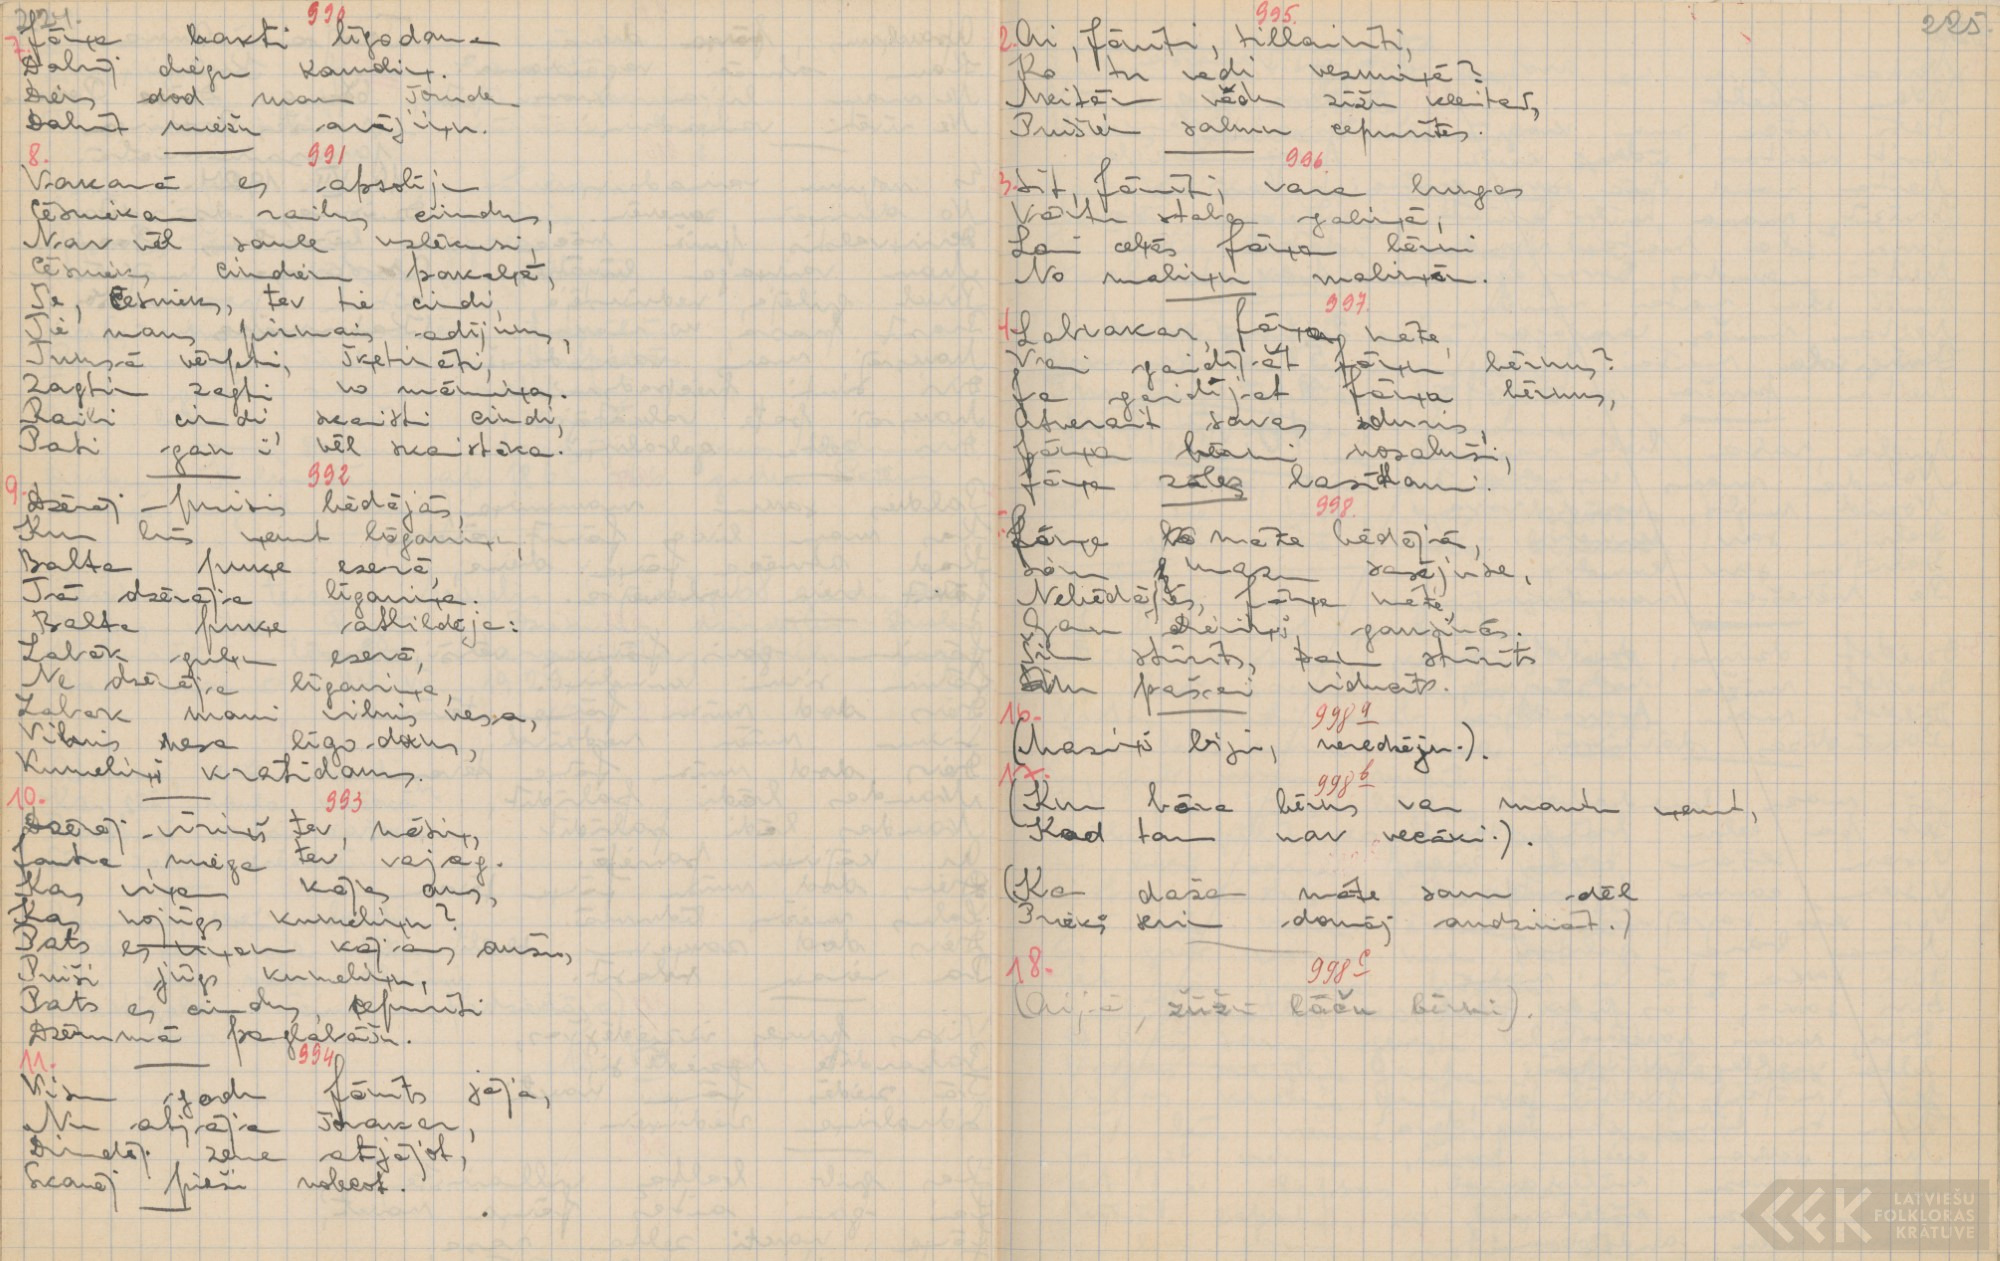 224.
990
7. Jāņa nakti līgodama
Dabuj diegu kamoliņ.
Dievs dod man
Dabūt miežu arājiņu.
8.
991
Vakarā es apsolīju
Cēsniekam raibus cimdus,
Nav vēl saule uzlēkusi,
Cēsnieks cimdiem pakaļā,
Te, Cēsnieks, tev tie cimdi,
Tie mans pirmais adījums,
Tumsā vērpti, šķetināti,
Zagtin zagti no māmiņas.
Raibi cimdi, skaisti cimdi,
Pati gan i vēl skaistāka.
9.
992
Dzērāj-puisis bēdājās,
Kur būs ņemt līgaviņu,
Balta puķe ezerā,
Tā dzērāja līgaviņa.
Balta puķe atbildēja:
Labāk guļu ezerā,
Ne dzērāja līgaviņa,
Labāk mani vilnis nesa,
Vilnis nesa līgodams,
Kumeliņš kratīdams.
10.
993
Dzērāj-vīriņš tev, māsiņ,
Jautra miega tev vajag.
Kas viņam kājas aus,
Kas nojūgs kumeliņu?
Pats es viņam kājas aušu,
Puiši jūgs kumeliņu,
Pats es cimdus, cepurīti
Dzērumā paglabāšu.
11.
994
Visu gadu Jānīts jāja,
Nu atjāja šovakar,
Dimdēj zeme atjājot,
Skanēj pieši nolecot.
225.
995.
2. Ai, Jānīti, tillainīti,
Ko tu vedi vezumiņā?
Meitām vedu zīžu kleitas,
Puišiem caunu cepurītes.
996.
3. Sit, Jānīti, vara bungas
Vārtu staba galiņā,
Lai ceļās Jāņa bērni
No maliņu maliņām.
997.
4. Labvakar, Jāņa māte,
Vai gaidījāt Jāņu bērnus?
Ja gaidījāt Jāņa bērnus,
Atverait savas durvis,
Jāņa bērni nosaluši,
Jāņa zāles lasīdami.
998.
5. Jāņa māte bēdājā,
mazu sasējuse,
Nebēdājēs, Jāņa māte,
Gan Dieviņš gausinās.
Šim stūrīts, tam stūrīts
pašai viducīts.
16.
998 a
(Maziņš biju, neredzēju.).
17.
998 b
(Kur bāra bērns var mantu ņemt,
Kad tam nav vecāki.).
(Ka daža māte savu dēl
Priekš domāj audzināt.)
18.
998 c
(Aijā, žūžu lāču bērni).
LATVIEŠU
FOLKLORAS
KRĀTUVE